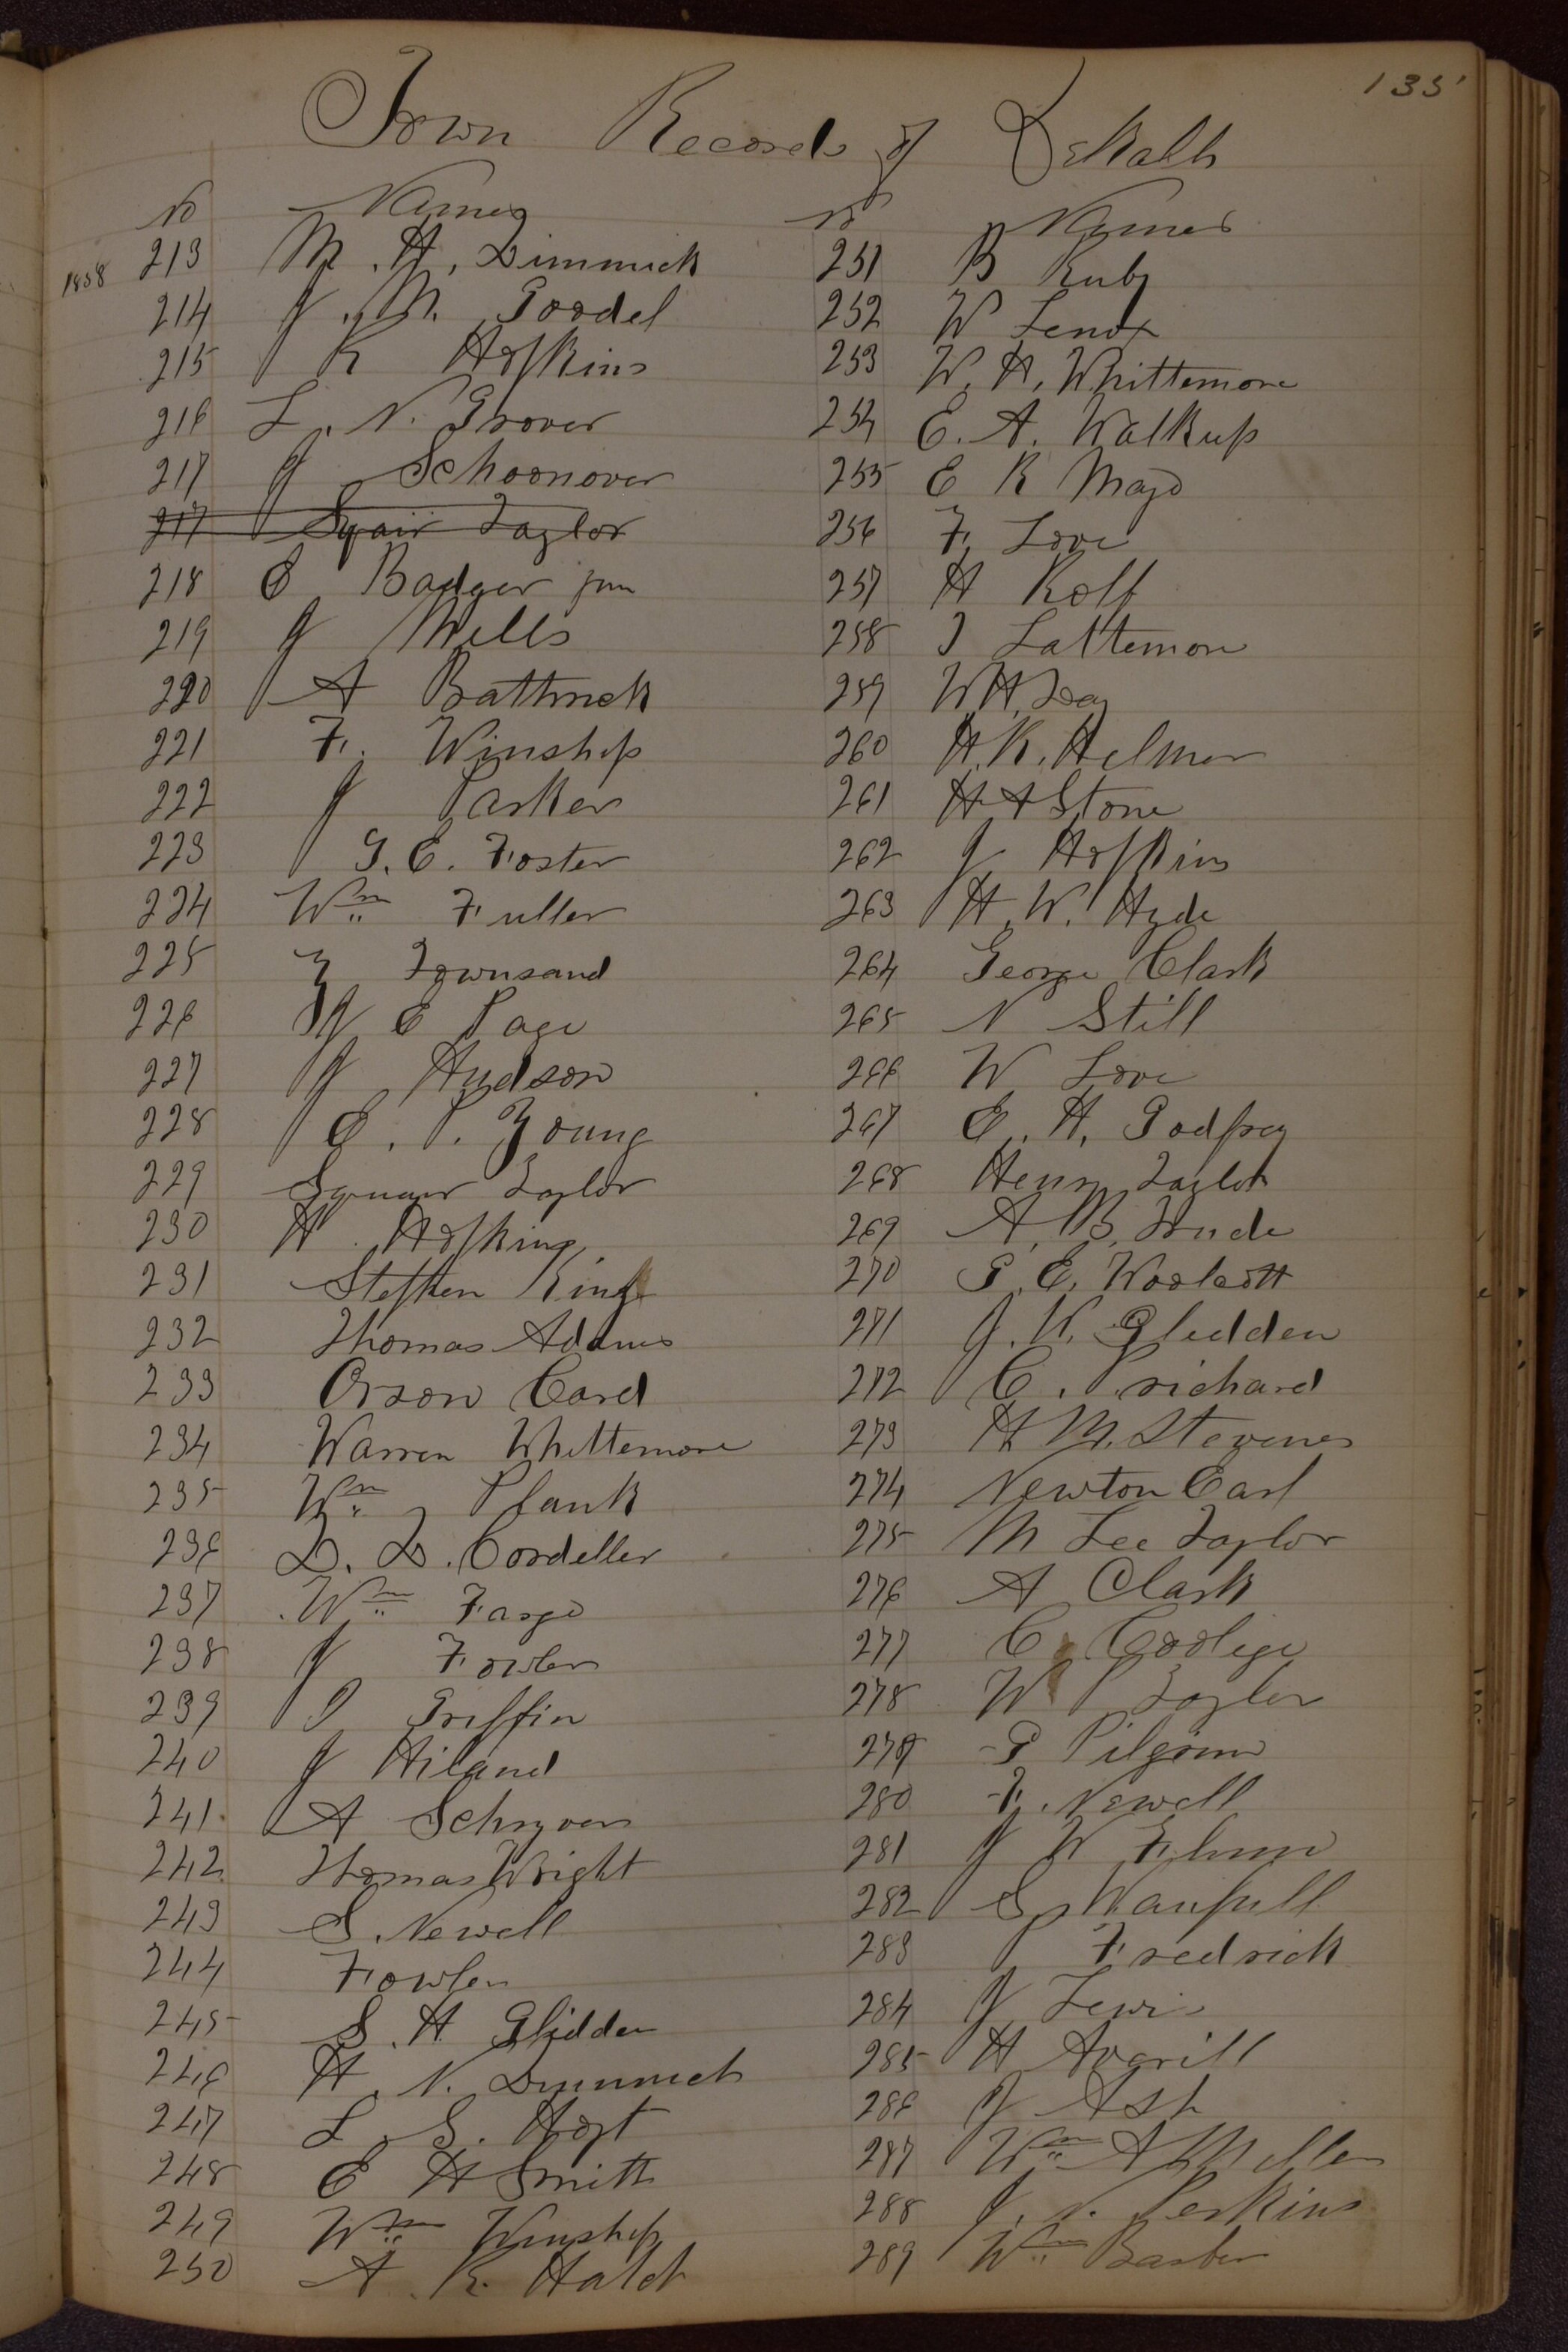 135
Town Records of DeKalb
No Names
1858 213 M. H. Dimmick
214 J. M. Goodel
215 R Hopkins
216 L. N. Grover
217 J Schoonover
217 Squair Taylor
218 E Badger jun
219 J Wells
220 A Battrick
221 F. Winship
222 J Parker
223 G. E. Foster
224 Wm Fuller
225 Townsand
226 E Page
227 J Hudson
228 E. P. Young
229 Squair Taylor
230 H. Hopkins
231 Stephen King
232 Thomas Adams
233 Orson Card
234 Warren Whittemore
235 Wm Plank
236 D. D. Cordeller
237 Wm Fargo
238 J Fowler
239 I Griffin
240 J Hiland
241 A Schryver
242 Thomas Wright
243 S. Newell
244 Fowler
245 S. H Glidden
246 H. N. Dimmick
247 L. S. Hoyt
248 E H Smith
249 Wm Winship
250 A. R. Hatch
No Names
251 B Ruby
252 W Lenox
253 W. H. Whittemore
254 E. A. Walkup
255 E R Mayo
256 F. Love
257 H Rolf
258 J Lattemore
259 W. H. Day
260 H. K. Helmer
261 H A Stone
262 J Hopkins
263 H. W. Hyde
264 George Clark
265 N Still
266 W Love
267 E. H. Godfrey
268 Henry Taylor
269 A. B.
270 G. E. Woolcott
271 J. W. Glidden
272 C. Prichard
273 H M. Stevenes
274 Newton Earl
275 M Lee Taylor
276 A Clark
277 C. Coolege
278 W P Taylor
279 P Pilgrim
280 F. Newell
281 J W
282 S
283 Fredrick
284 J Lewis
285 H Averill
286 J Ash
287 Wm A Miller
288 J. N. Perkins
289 Wm Barber